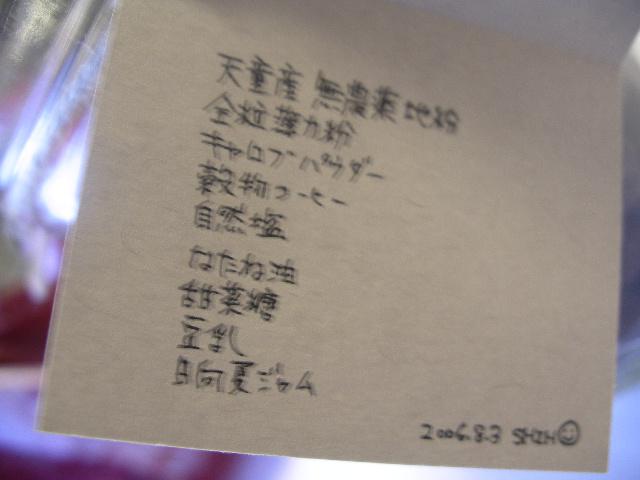 天童産 無農薬地粉
全粒薄力粉
キャロブパウダー
穀物コーヒー
自然塩
なたね油
甜菜糖
豆乳
日向夏ジャム
2006.8.3 SHIH☺